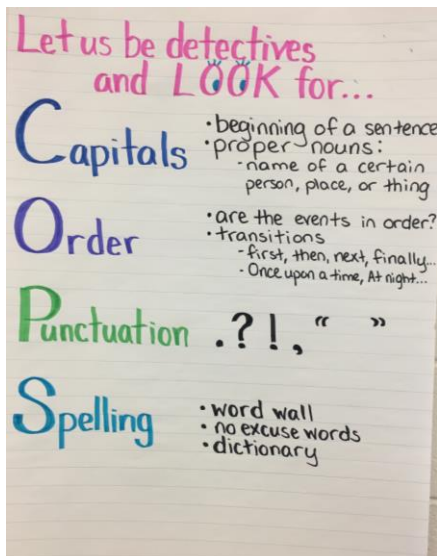 Let us be detectives
and LOOK for...
Capitals
• beginning of a sentence
• proper nouns:
- name of a certain
person, place, or thing
Order
• are the events in order?
• transitions
- first, then, next, finally...
- Once upon a time, At night...
Punctuation . ? ! , “ ”
Spelling
• word wall
• no excuse words
• dictionary